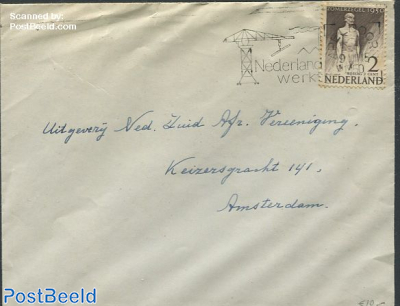 Scanned by:
PostBeeld.com
ZOMERZEGEL 1950
2
NEDERLAND
Nederland
werkt
Uitgeverij Ned. Zuid Afr. Vereeniging.
Keizersgracht 141,
Amsterdam.
€10,-
PostBeeld